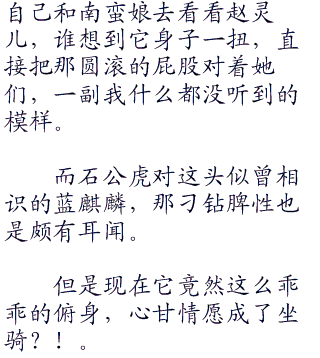 自己和南蛮娘去看看赵灵
儿，谁想到它身子一扭，直
接把那圆滚的屁股对着她
们，一副我什么都没听到的
模样。
而石公虎对这头似曾相
识的蓝麒麟，那刁钻脾性也
是颇有耳闻。
但是现在它竟然这么乖
乖的俯身，心甘情愿成了坐
骑？！。